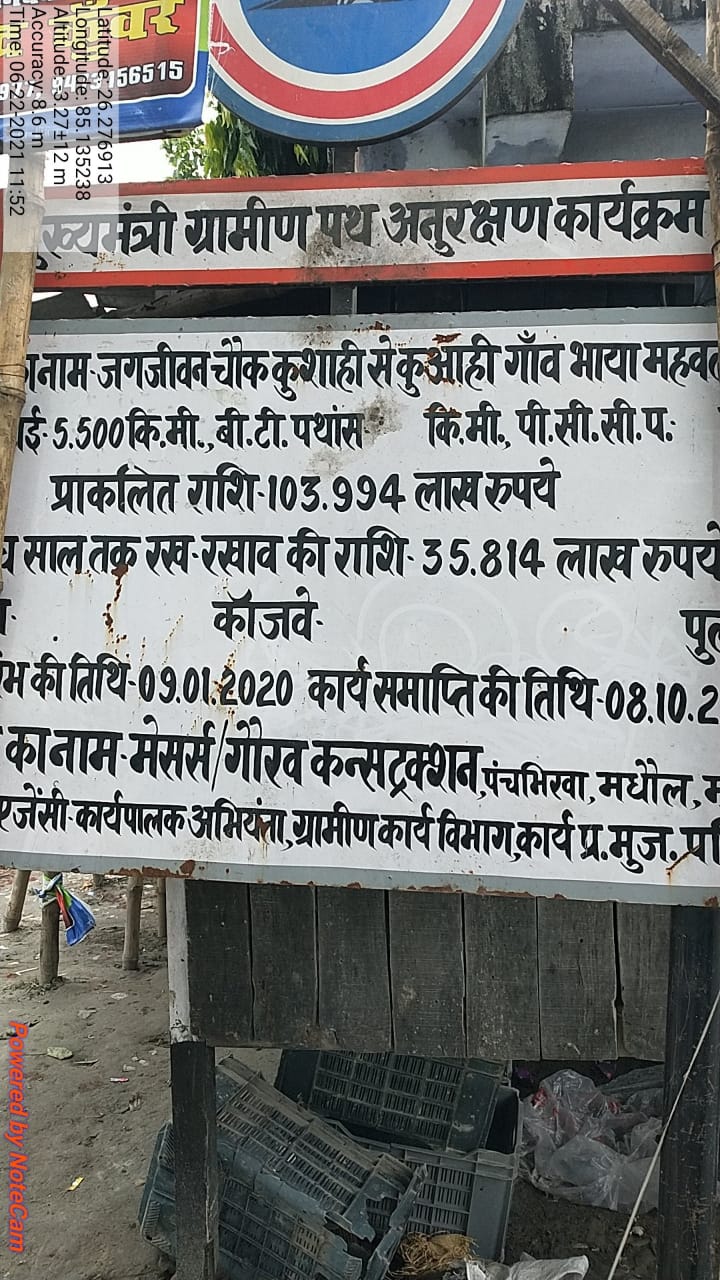 Latitude: 26.276913
Longitude: 85.135238
Altitude: 3.27±12 m
Accuracy: 8.6 m
Time: 06-22-2021 11:52
मुख्यमंत्री ग्रामीण पथ अनुरक्षण कार्यक्रम
नाम-जगजीवन चौक कुशाही से कुआही गाँव भाया महवल
ई-5.500 कि.मी., बी.टी. पथांस- कि.मी., पी.सी.सी.प:
प्राकलित राशि-103.994 लाख रुपये
साल तक रख-रखाव की राशि-35.814 लाख रुपये
कॉजवे- पुल
भ की तिथि-09.01.2020 कार्य समाप्ति की तिथि-08.10.2
का नाम-मेसर्स/गौरव कन्सट्रक्शन, पंचभिरवा, मधौल, म
एजेंसी-कार्यपालक अभियंता, ग्रामीण कार्य विभाग, कार्य प्र. मुज. पश्
Powered by NoteCam